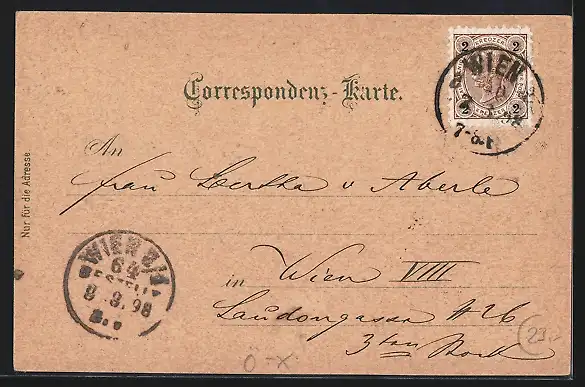 2 KREUZER 2
WIEN
2 2
7-8.
Correspondenz-Karte.
An
Frau Bertha v Aberle
Nur für die Adresse
WIEN 8/1
64
BESTELLT
8.3.98
in Wien VIII
Laudongasse # 26
3ten Stock
Ö-X
23.-